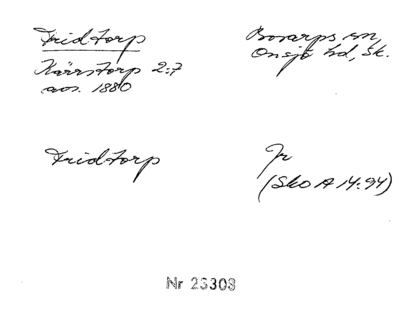 Fridtorp
Bosarps sn,
Onsjö hd, Sk.
Kärrstorp 2:7
avs. 1880
Fridtorp
Jr
(SkO A 14:94)
Nr 23308